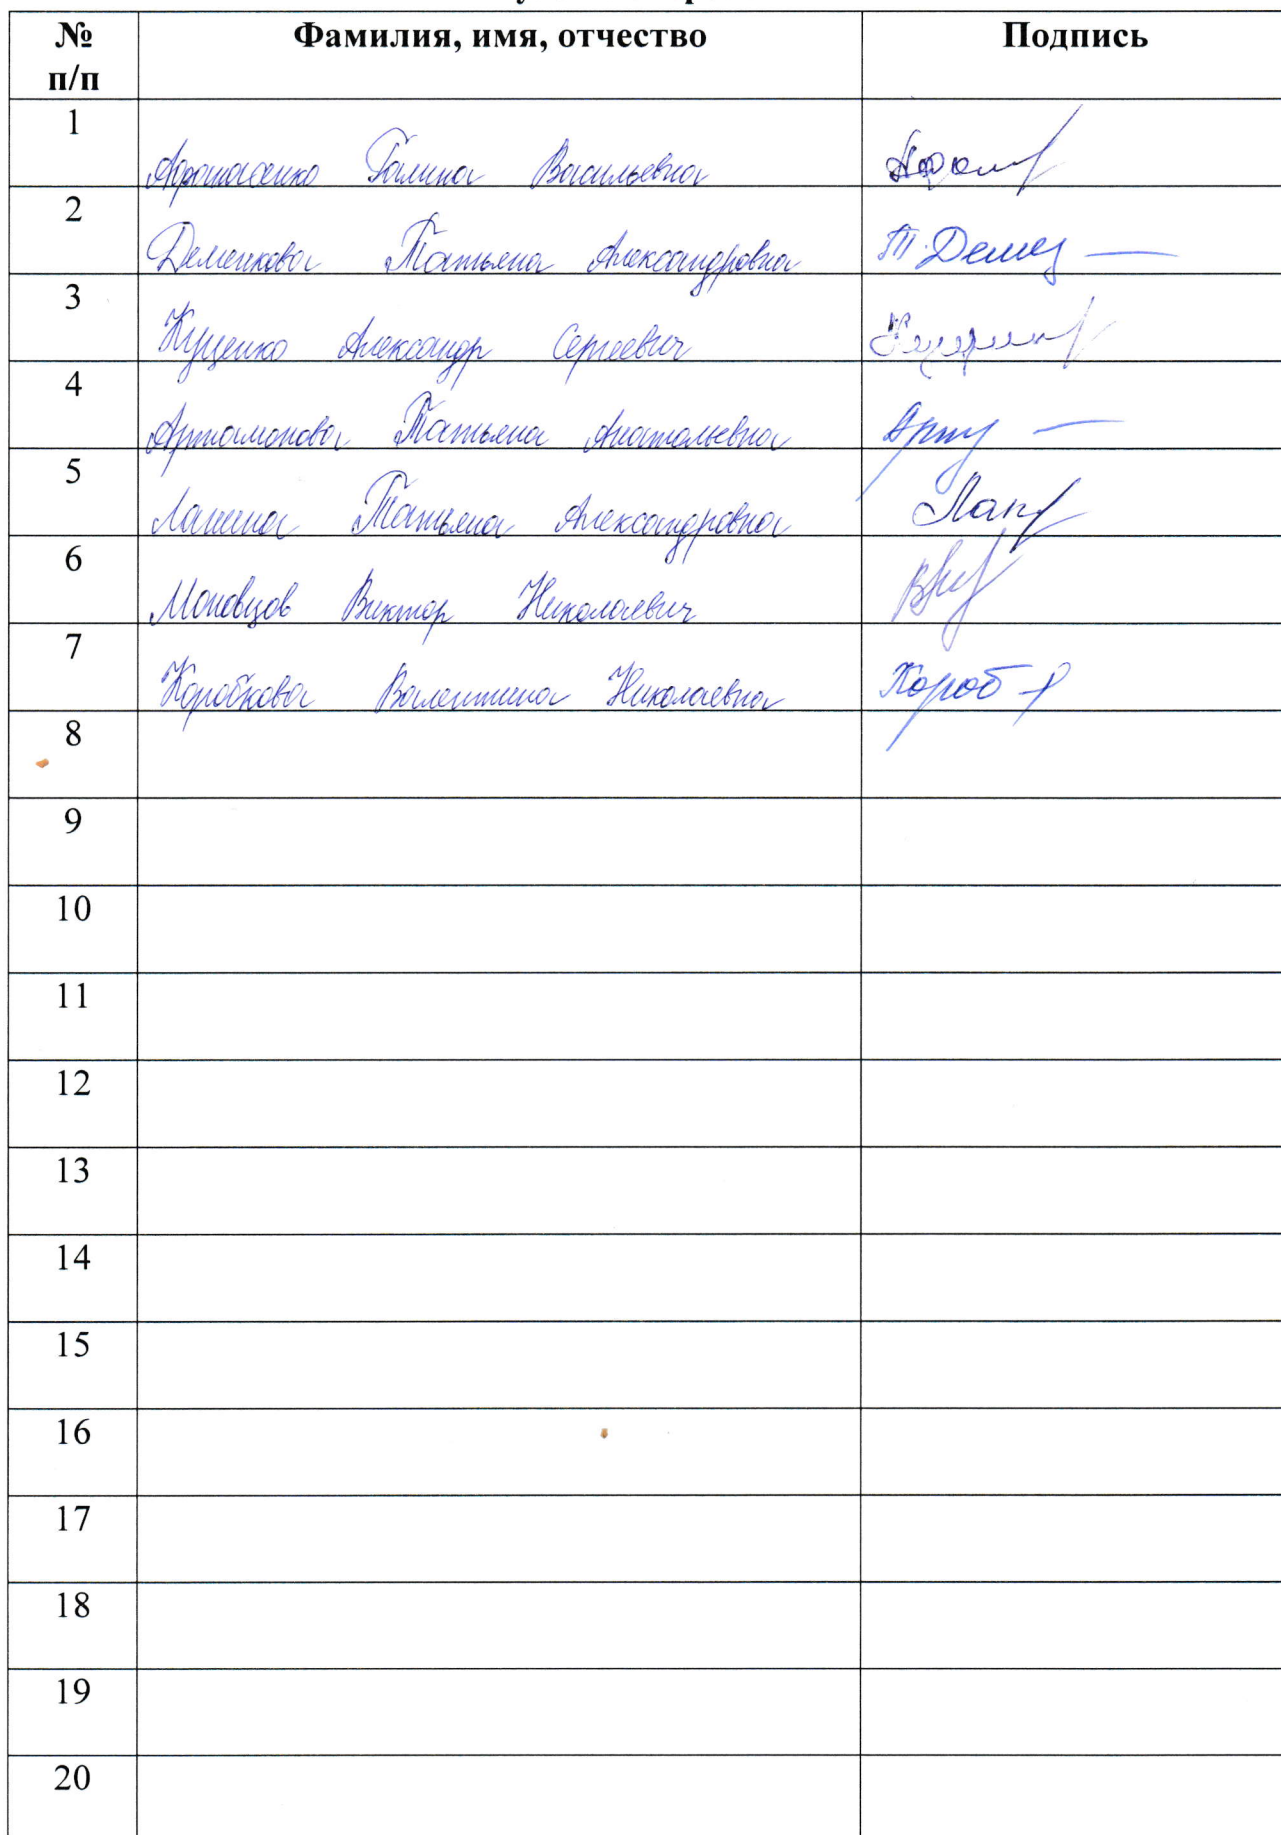 № п/п Фамилия, имя, отчество Подпись
1 Афанасенко Галина Васильевна
2 Деменкова Татьяна Александровна Т.Демен
3 Куценко Александр Сергеевич
4 Артамонова Татьяна Анатольевна
5 Лапина Татьяна Александровна Лап
6 Виктор Николаевич
7 Коробкова Валентина Николаевна Короб
8
9
10
11
12
13
14
15
16
17
18
19
20